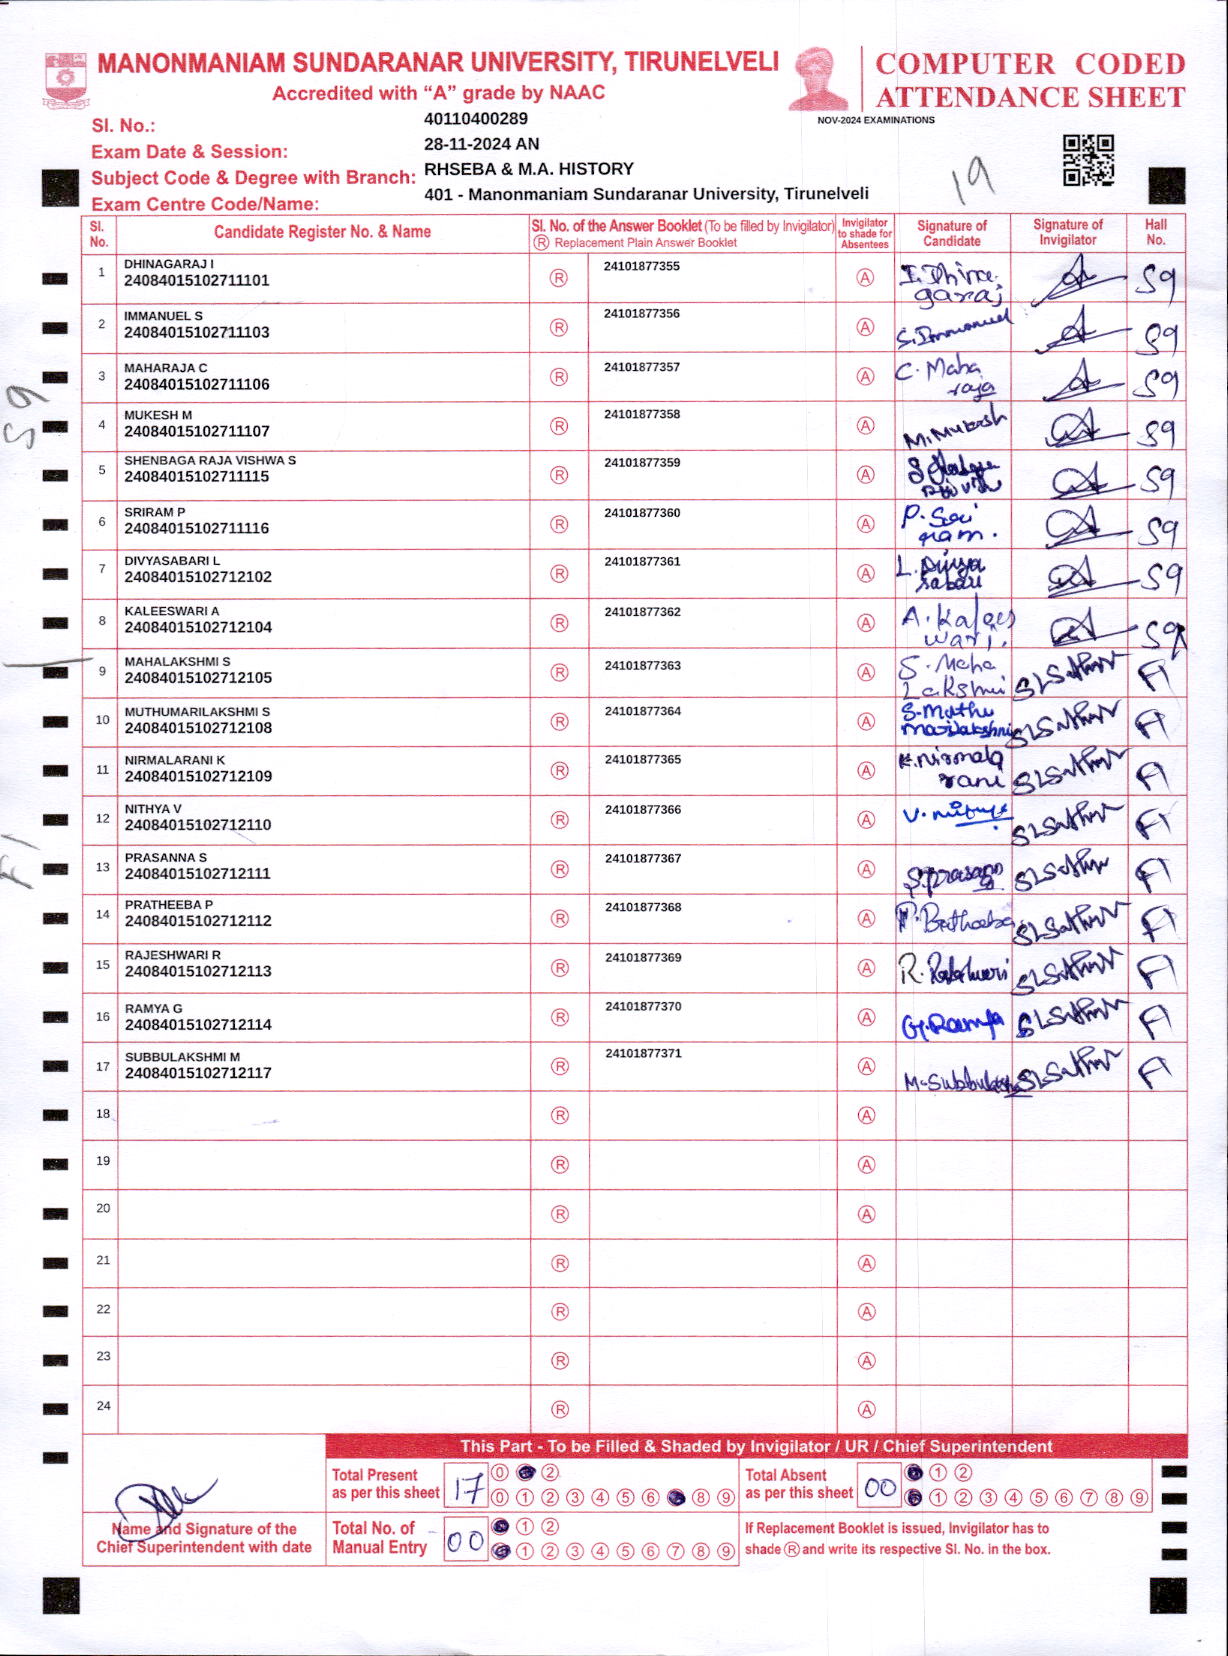 MANONMANIAM SUNDARANAR UNIVERSITY, TIRUNELVELI
Accredited with “A” grade by NAAC
COMPUTER CODED
ATTENDANCE SHEET
NOV-2024 EXAMINATIONS
Sl. No.: 40110400289
Exam Date & Session: 28-11-2024 AN
Subject Code & Degree with Branch: RHSEBA & M.A. HISTORY
Exam Centre Code/Name: 401 - Manonmaniam Sundaranar University, Tirunelveli
19
Sl. No. Candidate Register No. & Name Sl. No. of the Answer Booklet (To be filled by Invigilator) Ⓡ Replacement Plain Answer Booklet Invigilator to shade for Absentees Signature of Candidate Signature of Invigilator Hall No.
1 DHINAGARAJ I 24084015102711101 Ⓡ 24101877355 Ⓐ I. Dhinagaraj S9
2 IMMANUEL S 24084015102711103 Ⓡ 24101877356 Ⓐ S. Immanuel S9
3 MAHARAJA C 24084015102711106 Ⓡ 24101877357 Ⓐ C. Maha raja S9
4 MUKESH M 24084015102711107 Ⓡ 24101877358 Ⓐ M. Mukesh S9
5 SHENBAGA RAJA VISHWA S 24084015102711115 Ⓡ 24101877359 Ⓐ S9
6 SRIRAM P 24084015102711116 Ⓡ 24101877360 Ⓐ P. Sri ram. S9
7 DIVYASABARI L 24084015102712102 Ⓡ 24101877361 Ⓐ L. Divya Sabari S9
8 KALEESWARI A 24084015102712104 Ⓡ 24101877362 Ⓐ A. Kalees wari. S9
9 MAHALAKSHMI S 24084015102712105 Ⓡ 24101877363 Ⓐ S. Maha Lakshmi F1
10 MUTHUMARILAKSHMI S 24084015102712108 Ⓡ 24101877364 Ⓐ S. Muthu marilakshmi F1
11 NIRMALARANI K 24084015102712109 Ⓡ 24101877365 Ⓐ K. Nirmala rani F1
12 NITHYA V 24084015102712110 Ⓡ 24101877366 Ⓐ V. Nithya F1
13 PRASANNA S 24084015102712111 Ⓡ 24101877367 Ⓐ S. Prasanna F1
14 PRATHEEBA P 24084015102712112 Ⓡ 24101877368 Ⓐ P. Pratheeba F1
15 RAJESHWARI R 24084015102712113 Ⓡ 24101877369 Ⓐ R. Rajeshwari F1
16 RAMYA G 24084015102712114 Ⓡ 24101877370 Ⓐ G. Ramya F1
17 SUBBULAKSHMI M 24084015102712117 Ⓡ 24101877371 Ⓐ M. Subbulakshmi F1
18 Ⓡ Ⓐ
19 Ⓡ Ⓐ
20 Ⓡ Ⓐ
21 Ⓡ Ⓐ
22 Ⓡ Ⓐ
23 Ⓡ Ⓐ
24 Ⓡ Ⓐ
S9
F1
This Part - To be Filled & Shaded by Invigilator / UR / Chief Superintendent
Total Present as per this sheet 17 0 2
0 1 2 3 4 5 6 8 9
Total Absent as per this sheet 00 1 2
1 2 3 4 5 6 7 8 9
Name and Signature of the Chief Superintendent with date
Total No. of Manual Entry 00 1 2
1 2 3 4 5 6 7 8 9
If Replacement Booklet is issued, Invigilator has to
shade Ⓡ and write its respective Sl. No. in the box.